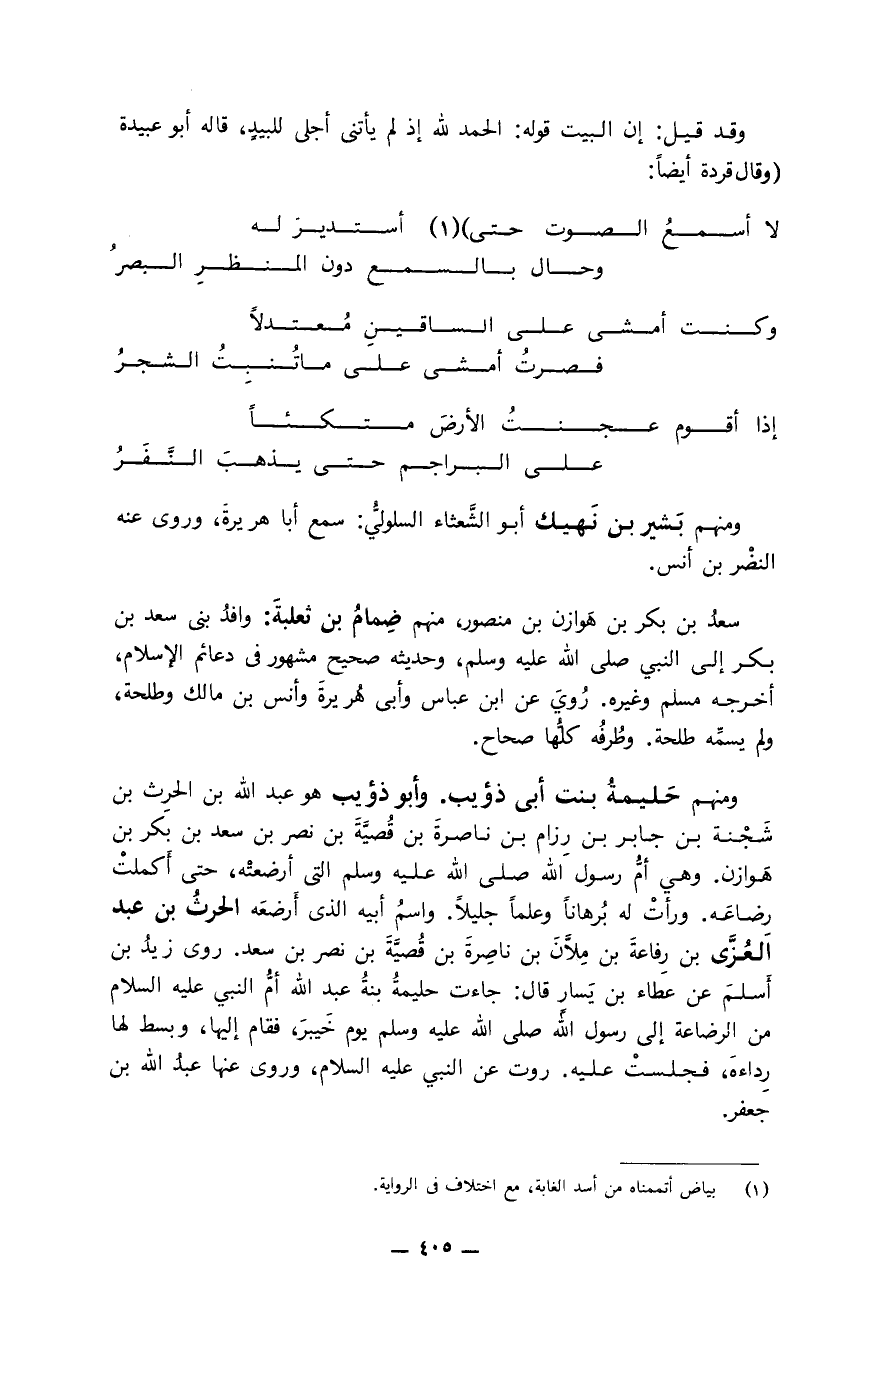 وقد قيل: إن البيت قوله: الحمد لله إذ لم يأتنى أجلى للبيدٍ، قاله أبو عبيدة
(وقال قردة أيضاً:
لا أسمعُ الصوت حتى)(١) أستديرَ له
وحال بالسمع دون المنظرِ البصرُ
وكنت أمشى على الساقينِ مُعتدلاً
فصرتُ أمشى على ماتُنبِتُ الشجرُ
إذا أقوم عجنتُ الأرضَ متكئاً
على البراجم حتى يذهبَ النَّفَرُ
ومنهم بَشير بن نَهيك أبو الشَّعثاء السلوليُّ: سمع أبا هريرةَ، وروى عنه
النضْر بن أنس.
سعدُ بن بكر بن هَوازن بن منصور، منهم ضِمامُ بن ثعلبةَ: وافدُ بنى سعد بن
بكر إلى النبي صلى الله عليه وسلم، وحديثه صحيح مشهور فى دعائم الإسلام،
أخرجه مسلم وغيره. رُويَ عن ابن عباس وأبى هُريرةَ وأنس بن مالك وطلحة،
ولم يسمِّه طلحة. وطُرفُه كلُّها صحاح.
ومنهم حَليمةُ بنت أبى ذؤيب. وأبو ذؤيب هو عبد الله بن الحرِث بن
شَجْنة بن جابر بن رِزام بن ناصرةَ بن قُصيَّةَ بن نصر بن سعد بن بكر بن
هَوازن. وهي أمُّ رسول الله صلى الله عليه وسلم التى أرضعتْه، حتى أكملتْ
رضاعَه. ورأتْ له بُرهاناً وعلماً جليلاً. واسمُ أبيه الذى أرضعَه الحرثُ بن عبد
العُزَّى بن رِفاعةَ بن مِلاَّنَ بن ناصِرةَ بن قُصيَّةَ بن نصر بن سعد. روى زيدُ بن
أسلمَ عن عطاء بن يَسارٍ قال: جاءت حليمةُ بنةُ عبد الله أمُّ النبي عليه السلام
من الرضاعة إلى رسول الله صلى الله عليه وسلم يوم خَيبرَ، فقام إليها، وبسط لها
رداءهَ، فجلستْ عليه. روت عن النبي عليه السلام، وروى عنها عبدُ الله بن
جعفر.
(١) بياض أتممناه من أسد الغابة، مع اختلاف فى الرواية.
— ٤٠٥ —